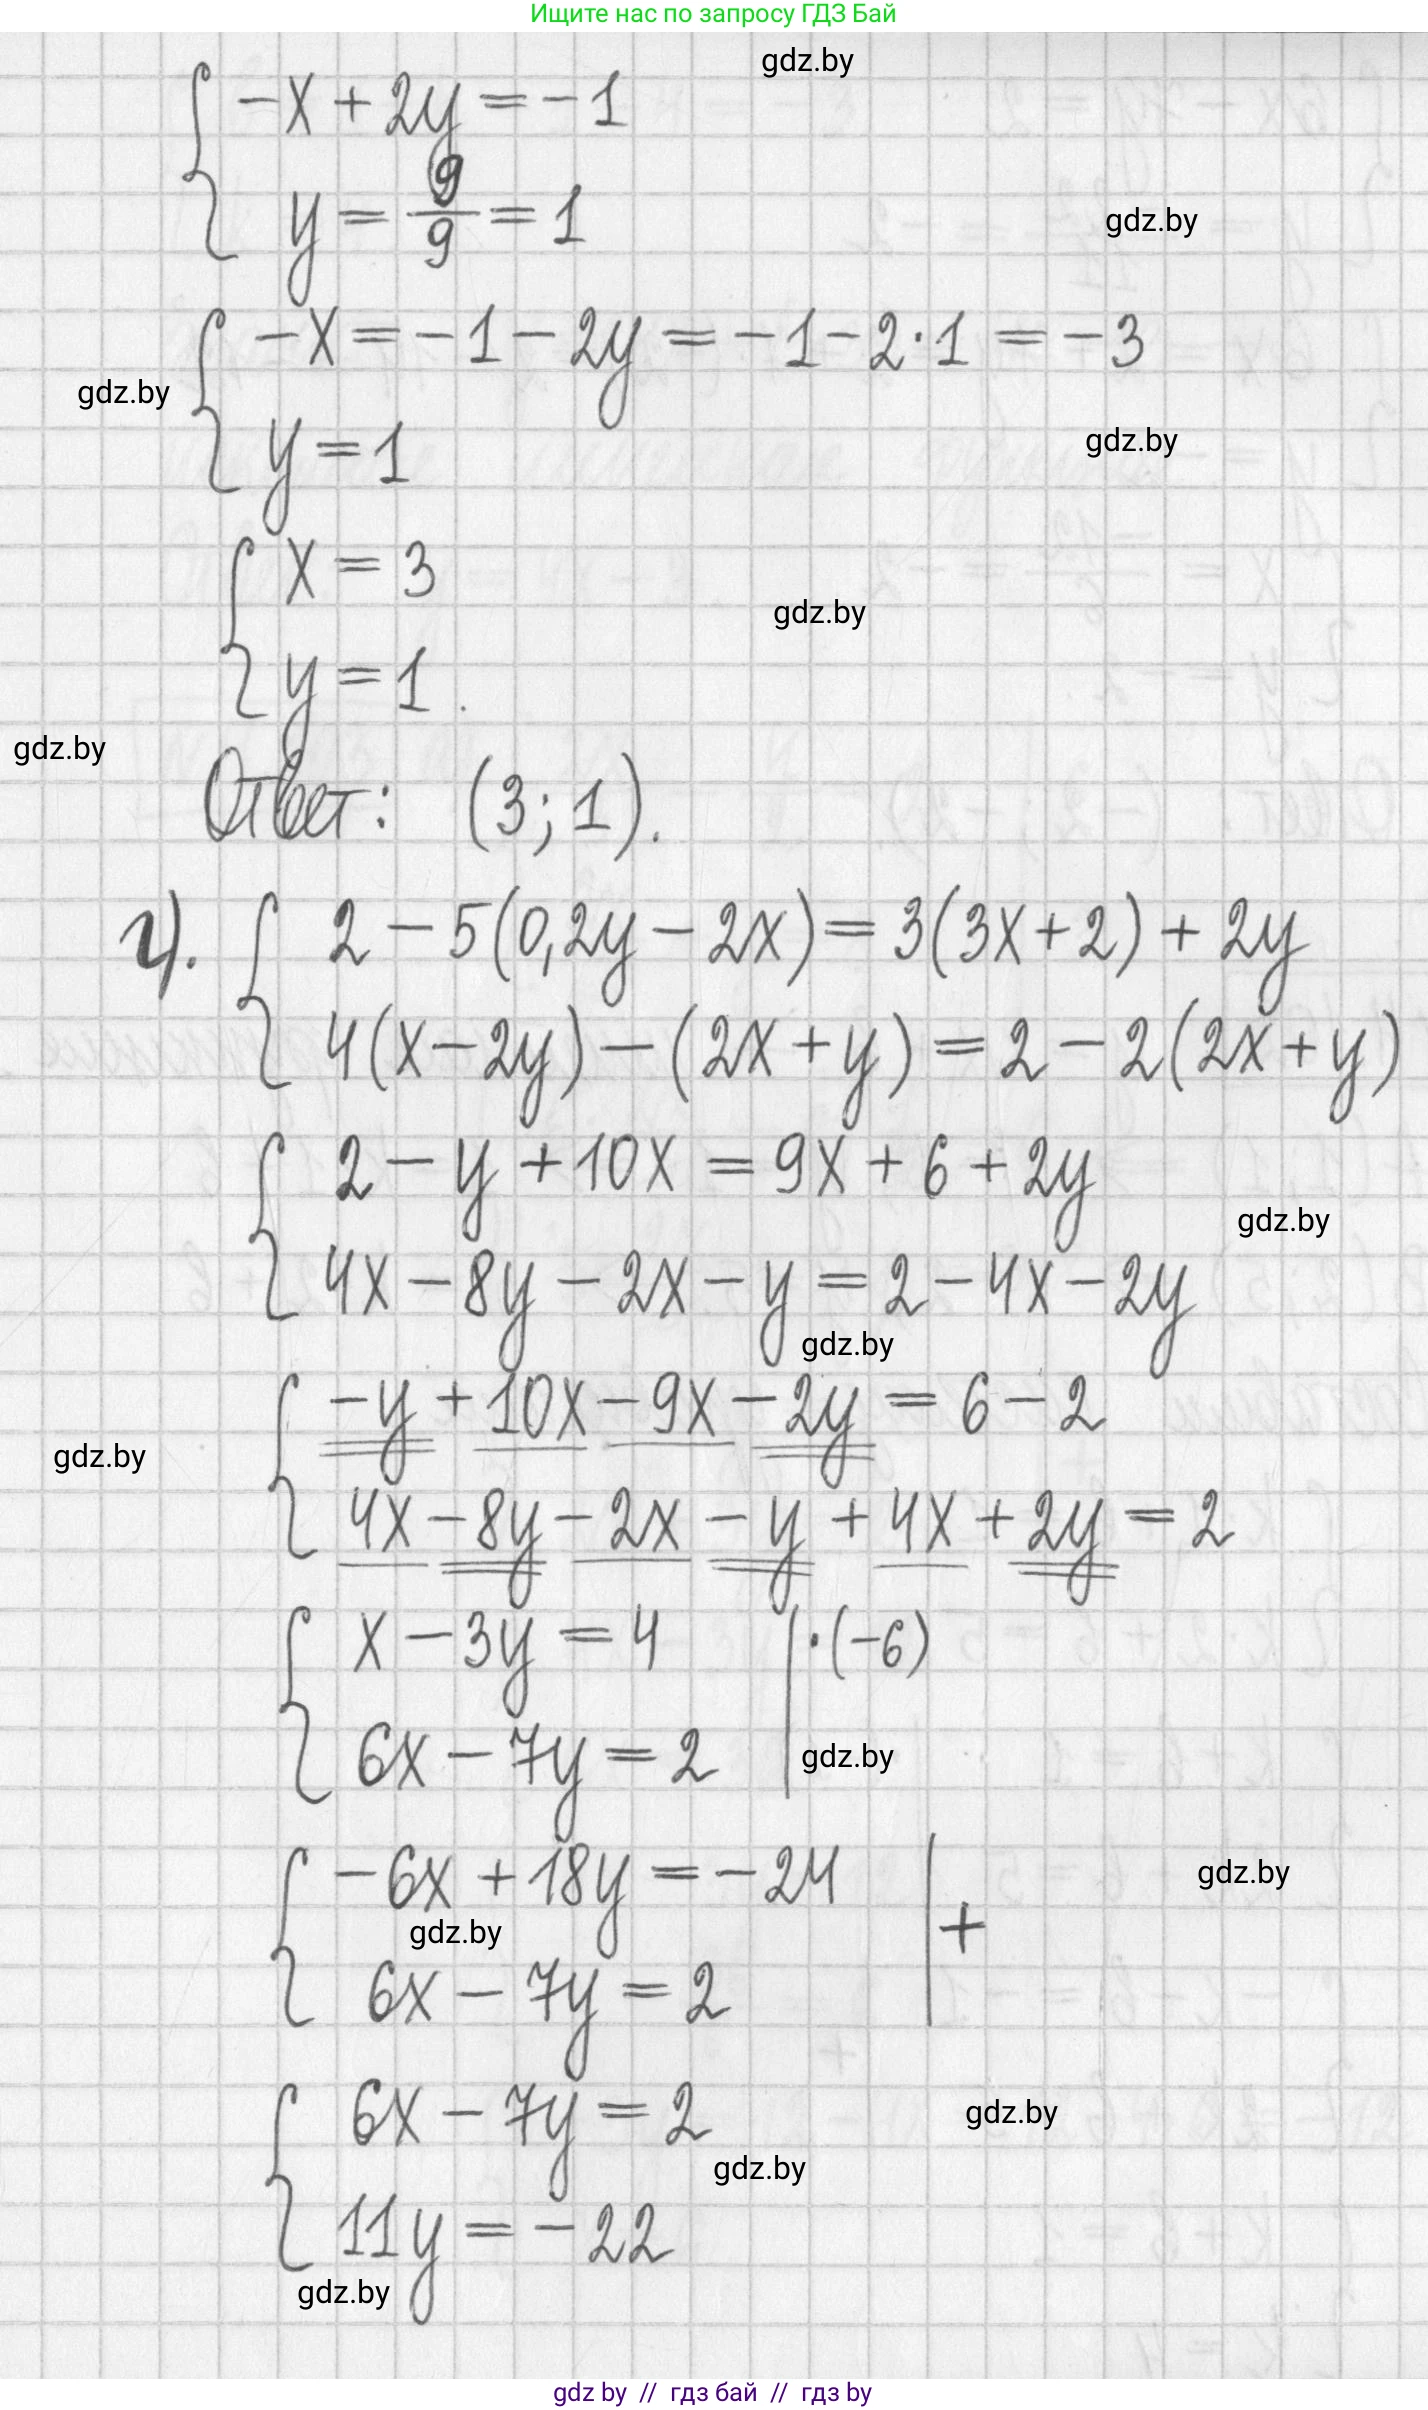 Ищите нас по запросу ГДЗ Бай
gdz.by
-x + 2y = -1
y = 9/9 = 1
gdz.by
-x = -1 - 2y = -1 - 2·1 = -3
gdz.by
y = 1
gdz.by
x = 3
gdz.by
y = 1.
gdz.by
Ответ: (3; 1).
г). 2 - 5(0,2y - 2x) = 3(3x + 2) + 2y
4(x - 2y) - (2x + y) = 2 - 2(2x + y)
2 - y + 10x = 9x + 6 + 2y
gdz.by
4x - 8y - 2x - y = 2 - 4x - 2y
gdz.by
-y + 10x - 9x - 2y = 6 - 2
gdz.by
4x - 8y - 2x - y + 4x + 2y = 2
x - 3y = 4 | ·(-6)
6x - 7y = 2
gdz.by
-6x + 18y = -24
gdz.by
gdz.by
+
6x - 7y = 2
6x - 7y = 2
gdz.by
gdz.by
11y = -22
gdz.by
gdz by // гдз бай // гдз by